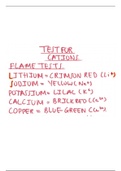 TEST FOR
CATIONS
FLAME TESTS
LITHIUM=CRIMSON RED (Li⁺)
SODIUM = YELLOW (Na⁺)
POTASSIUM= LILAC (K⁺)
CALCIUM = BRICK RED (Ca²⁺)
COPPER = BLUE-GREEN (Cu²⁺)